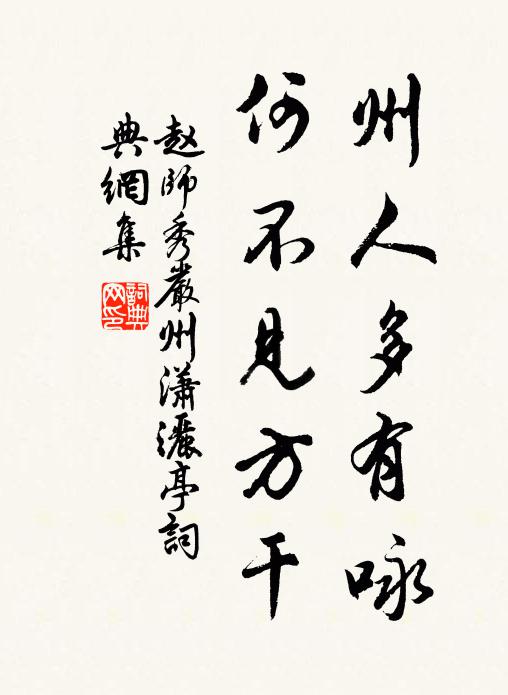 州人多有咏
何不见方干
赵師秀巖州瀟灑亭詞
典網集
詞典
网印